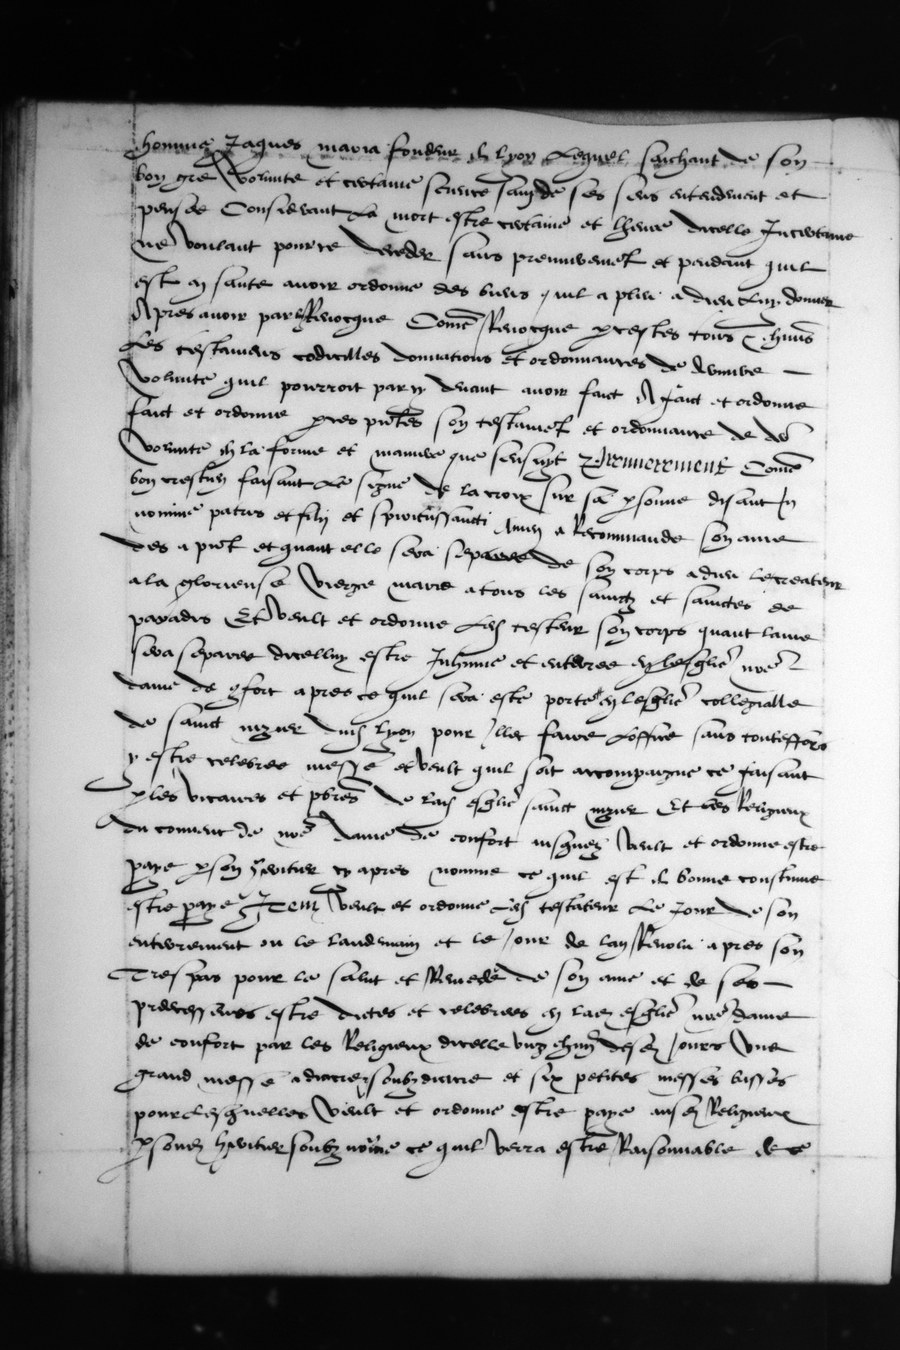 homme Jaques maria fondeur de lyon Lequel saichant de son
bon gre volunte et certaine science sain de ses sens entendement et
pensee Considerant la mort estre certaine et lheure dicelle Incertaine
ne voulant pource deceder sans premierement et pendant quil
est en sante avoir ordonne des biens quil a pleu a dieu luy donner
Apres avoir par luy Revocque Come Revocque p ces tes tous & chuns
Les testamens codicilles donnations et ordonnances de derniere
volunte quil pourroit par cy devant avoir faict A faict et ordonne
faict et ordonne p ces pntes son testamet et ordonnance de dre
volunte en la forme et maniere que sensuyt Premierement Come
bon crestien faisant Le signe de la croix sur sa psonne disant In
nomine patris et filij et spiritussancti Amen a Recommande son ame
des a pnt et quant elle sera separee de son corps a dieu le createur
a la glorieuse vierge marie a tous les sainctz et sainctes de
paradis Et veult et ordonne Led testeur son corps quant lame
sera separee dicelluy estre Inhume et enterre en leglie nre
dame de gfort apres ce quil sera este porte en leglie collegialle
de sainct nyzier dud lyon pour Illec faire Loffice sans touteffois
y estre celebree messe et veult quil soit accompaigne ce faisant
p les vicaires et pbres de lad eglie sainct nyzier Et des Religieux
du couvent de nre dame de confort ausquelz veult et ordonne estre
paye p son heritier cy apres nomme ce quil est de bonne coustume
estre paye Item veult et ordonne Led testateur Le Jour de son
enterrement ou le landemain et le Jour de lan Revolu apres son
Trespas pour le salut et Remede de son ame et de ses
predecesseurs estre dictes et celebrees en lad eglie nre dame
de confort par les Religieux dicelle ung chun desd Jours une
grand messe a diacre soubzdiacre et six petites messes basses
pour Lesquelles veult et ordonne estre paye ausd Religieux
p sond heritier soubz nome ce quil verra estre Raisonnable de ce